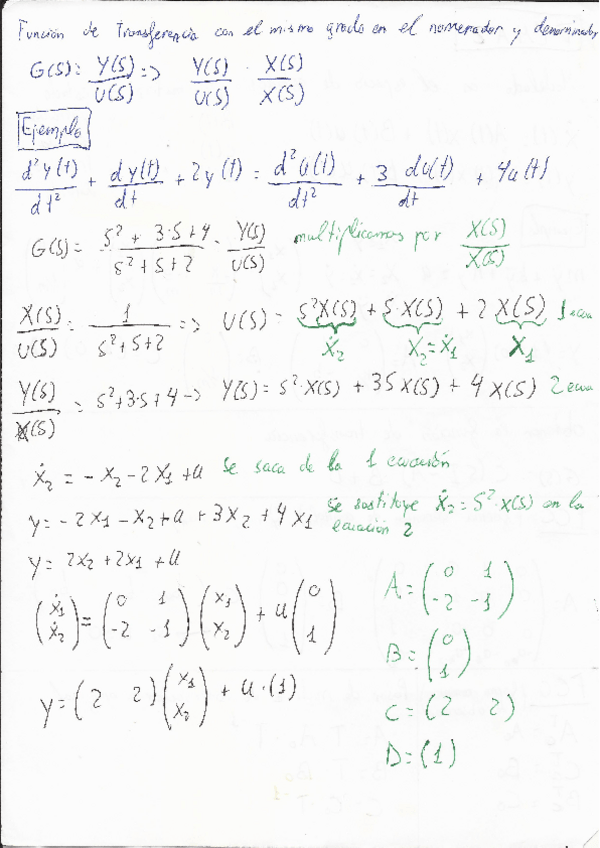 Función de Transferencia con el mismo grado en el numerador y denominador
G(S) = Y(S)/U(S) => Y(S)/U(S) · X(S)/X(S)
Ejemplo
d²y(t)/dt² + dy(t)/dt + 2y(t) = d²u(t)/dt² + 3 du(t)/dt + 4u(t)
G(S) = S² + 3·S + 4 / S² + S + 2 = Y(S)/U(S) multiplicamos por X(S)/X(S)
X(S)/U(S) = 1/S²+S+2 => U(S) = S²X(S) + S·X(S) + 2 X(S) 1 ecua
Ẋ₂ X₂=Ẋ₁ X₁
Y(S)/X(S) = S²+3·S+4 -> Y(S) = S²·X(S) + 3SX(S) + 4 X(S) 2 ecua
ẋ₂ = -x₂-2x₁+u Se saca de la 1 ecuación
y = -2x₁-x₂+u+3x₂+4x₁ Se sustituye Ẋ₂=S²·X(S) en la ecuación 2
y = 2x₂+2x₁+u
(ẋ₁ ẋ₂) = (0 1 -2 -1) (x₁ x₂) + u (0 1)
y = (2 2) (x₁ x₂) + u·(1)
A = (0 1 -2 -1)
B = (0 1)
C = (2 2)
D = (1)